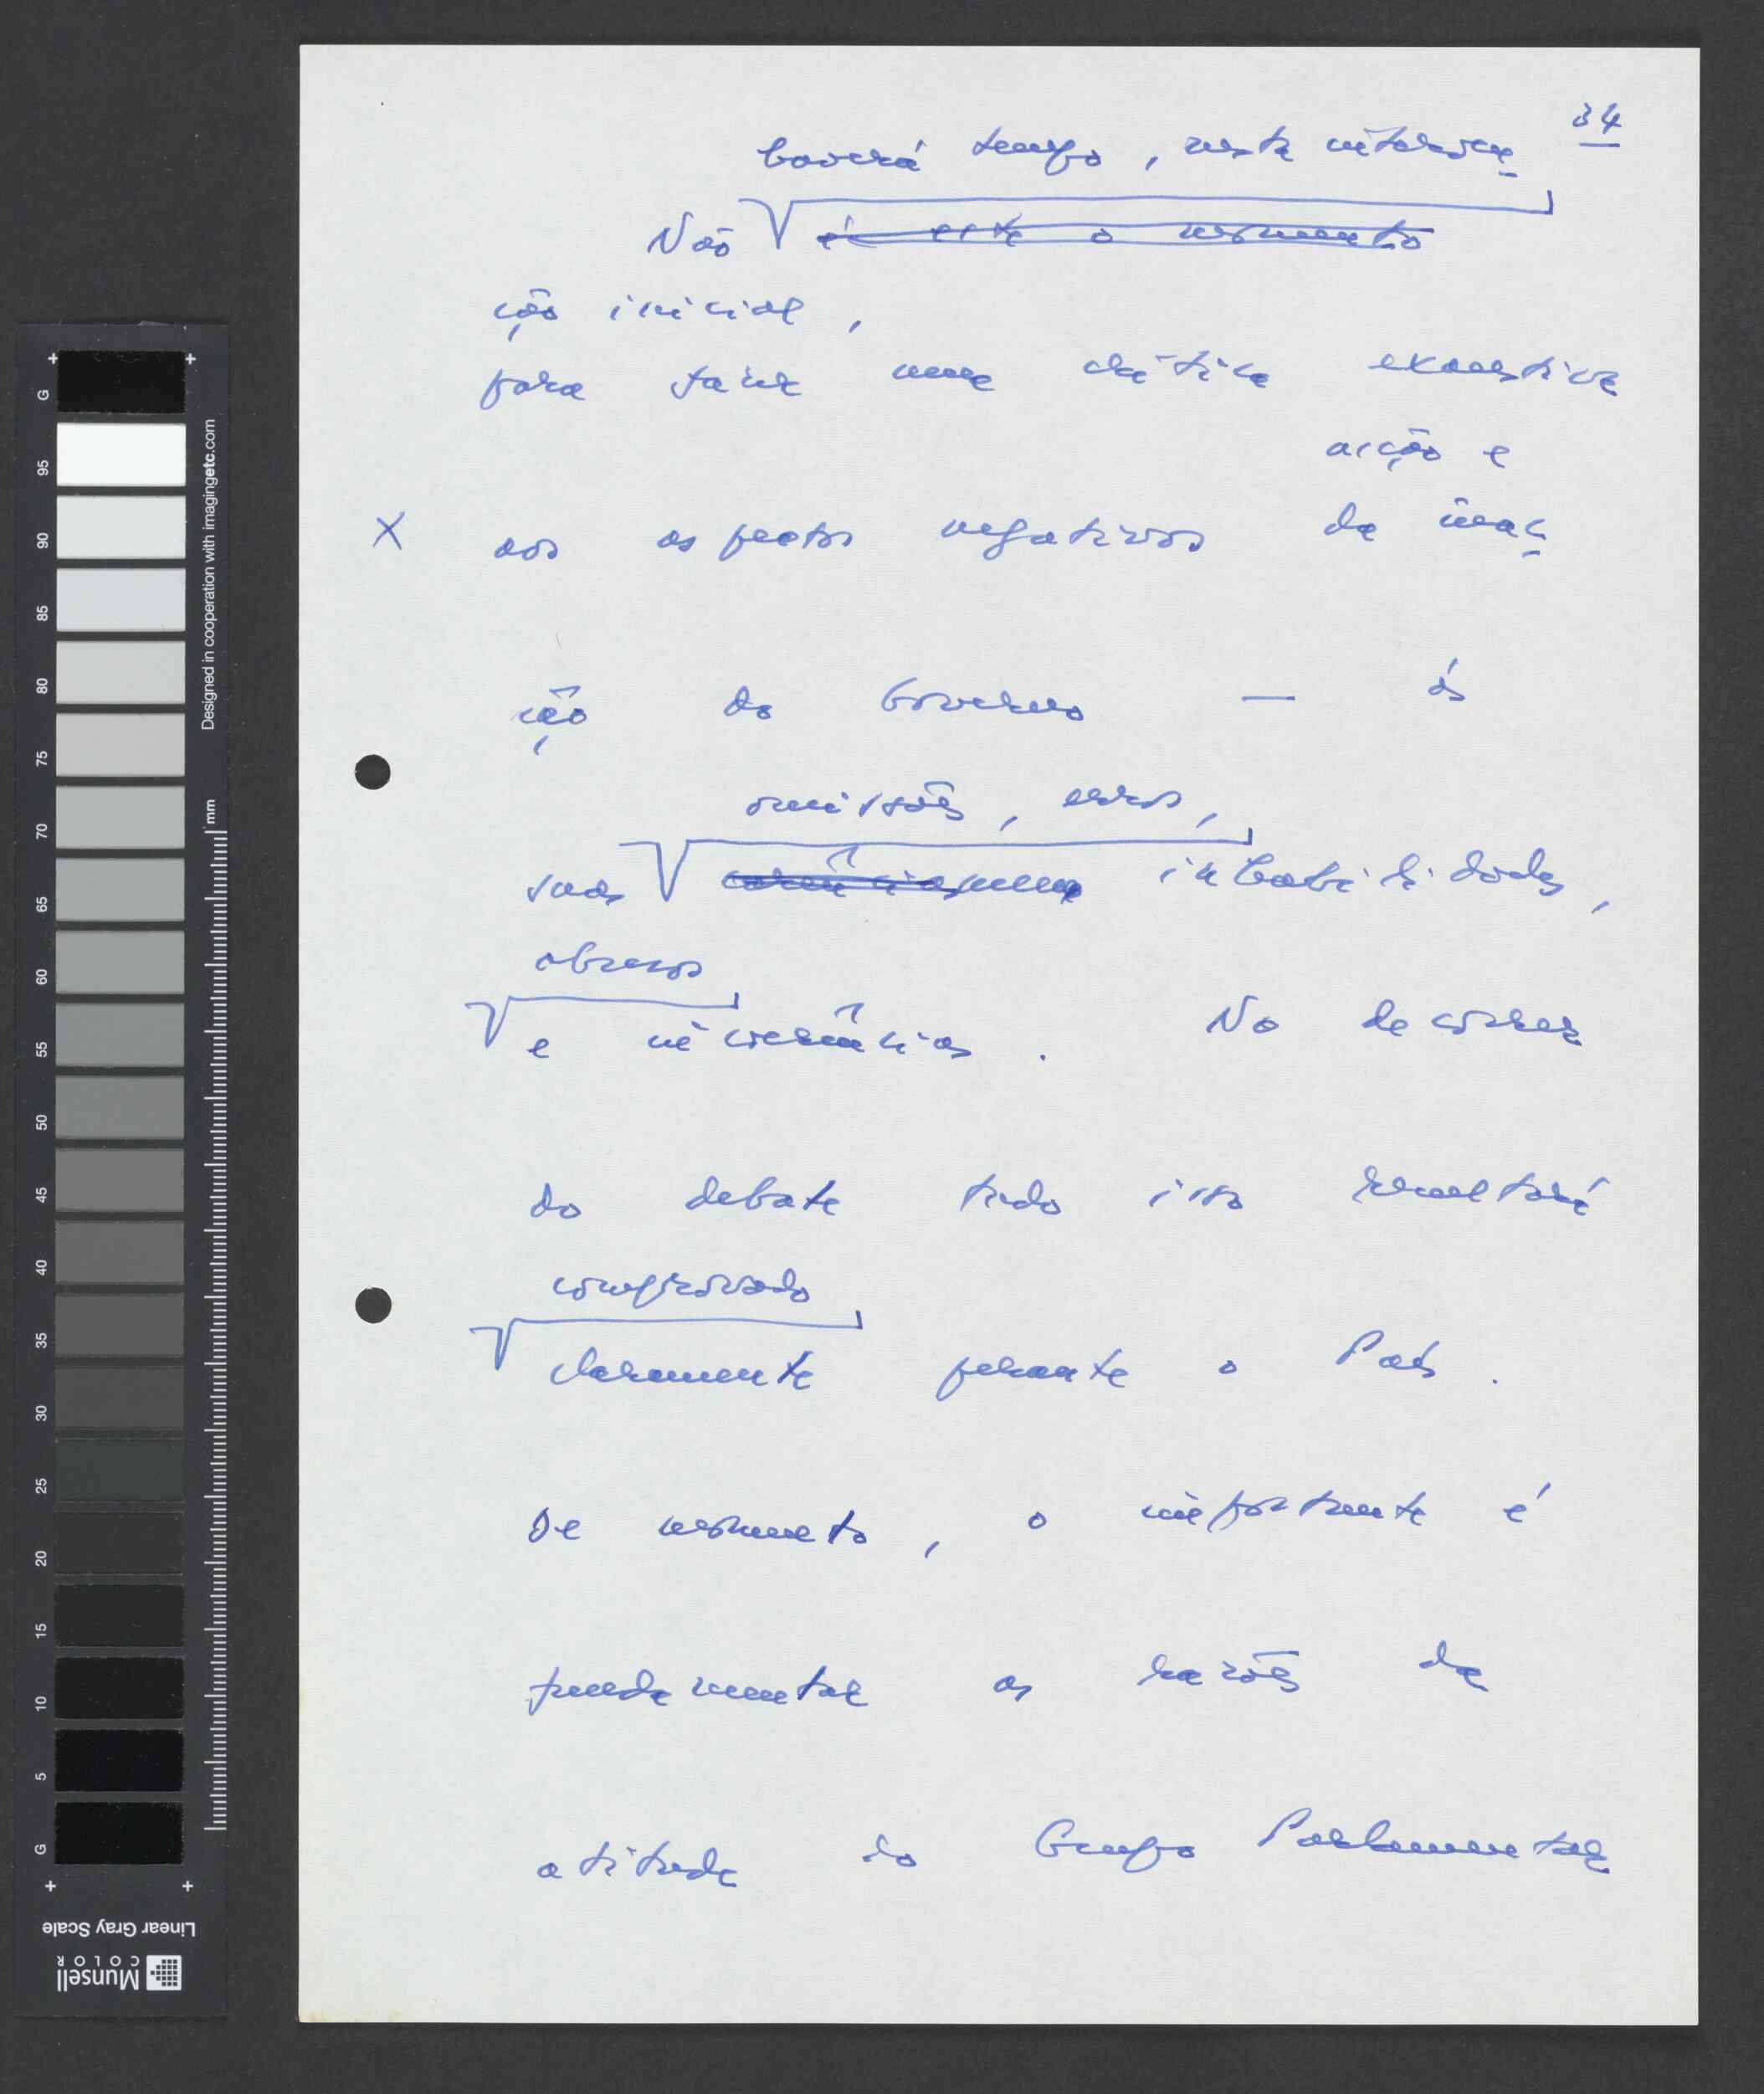 34
haverá tempo, nesta interven
Não é este o momento
ção inicial,
para fazer uma crítica exaustiva
acção e
X aos aspectos negativos da inac
ção do Governo — às
omissões, erros,
suas carências, inabilidades,
abusos
e incoerências. No decorrer
do debate tudo isso resultará
comprovado
claramente perante o País.
De momento, o importante é
fundamentar as razões da
atitude do Grupo Parlamentar
G
95
90
85
80
75
70
65
60
55
50
45
40
35
30
25
20
15
10
5
G
Designed in cooperation with imagingetc.com
mm
Linear Gray Scale
Munsell
COLOR